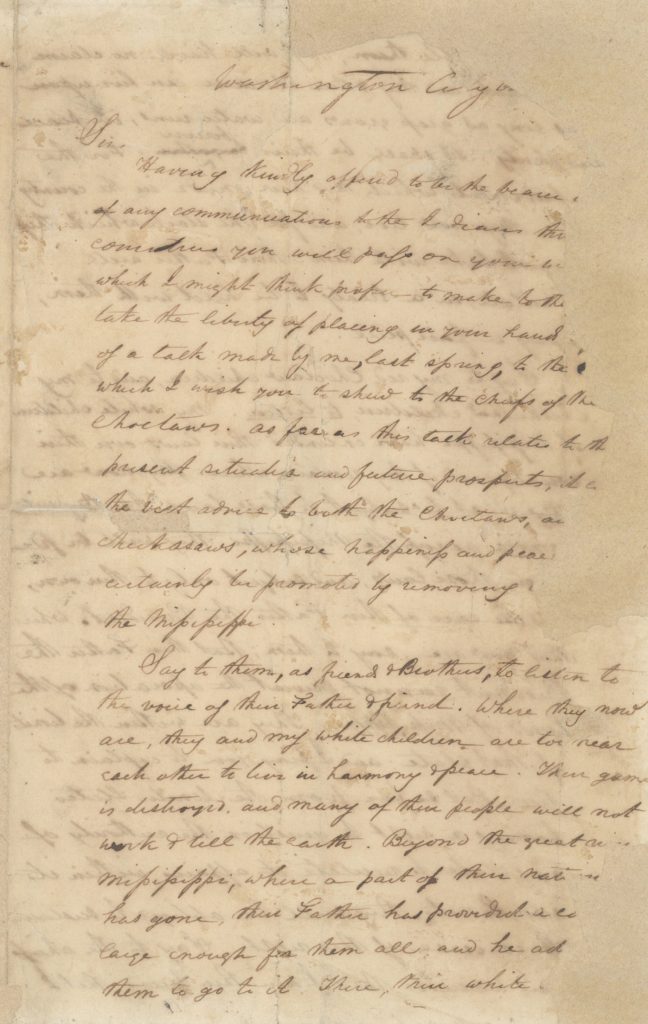 Washington City
Sir,
Having kindly offered to be the bearer
of any communications to the Indians thro
countries you will pass on your
which I might think proper to make to the
take the liberty of placing in your hand
of a talk made by me, last spring, to the
which I wish you to shew to the chiefs of the
Choctaws. as far as this talk relates to th
present situation and future prospects, it
the best advice to both the Choctaws, a
Chickasaws, whose happiness and peac
certainly be promoted by removing
the Mississippi.
Say to them, as friends & Brothers, to listen to
the voice of their Father & friend. Where they now
are, they and my white children are too near
each other to live in harmony & peace. Their game
is destroyed and many of their people will not
work & till the earth. Beyond the great
Mississippi, where a part of their nation
has gone, their Father has provided a co
large enough for them all, and he ad
them to go to it. There, their white